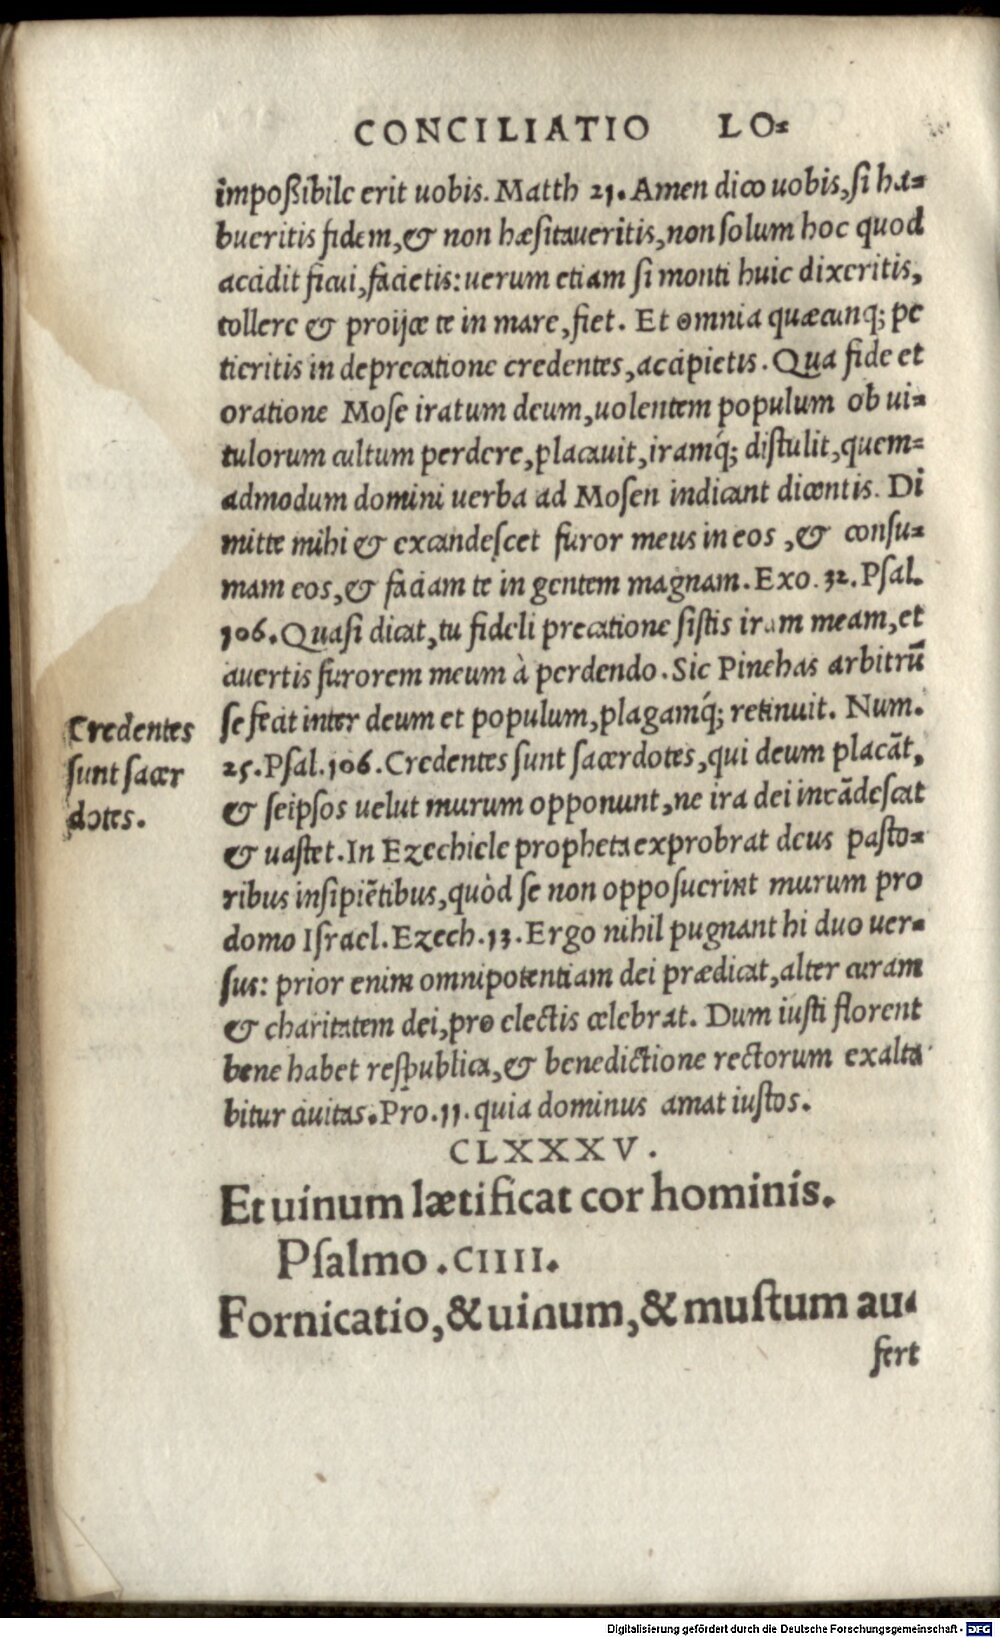 CONCILIATIO LO=
impoßibile erit uobis. Matth 21. Amen dico uobis, si ha=
bueritis fidem, & non hæsitaueritis, non solum hoc quod
accidit ficui, facietis: uerum etiam si monti huic dixeritis,
tollere & proijce te in mare, fiet. Et omnia quæcunq; pe
tieritis in deprecatione credentes, accipietis. Qua fide et
oratione Mose iratum deum, uolentem populum ob ui=
tulorum cultum perdere, placauit, iramq́; distulit, quem=
admodum domini uerba ad Mosen indicant dicentis. Di
mitte mihi & excandescet furor meus in eos, & consu=
mam eos, & faciam te in gentem magnam. Exo. 32. Psal.
106. Quasi dicat, tu fideli precatione sistis iram meam, et
auertis furorem meum à perdendo. Sic Pinehas arbitrū
se fecit inter deum et populum, plagamq́; retinuit. Num.
25. Psal. 106. Credentes sunt sacerdotes, qui deum placāt,
& seipsos uelut murum opponunt, ne ira dei incādescat
& uastet. In Ezechiele propheta exprobrat deus pasto=
ribus insipiētibus, quòd se non opposuerint murum pro
domo Israel. Ezech. 13. Ergo nihil pugnant hi duo uer=
sus: prior enim omnipotentiam dei prædicat, alter curam
& charitatem dei, pro electis celebrat. Dum iusti florent
bene habet respublica, & benedictione rectorum exalta
bitur ciuitas. Pro. 11. quia dominus amat iustos.
Credentes
sunt sacer
dotes.
CLXXXV.
Et uinum lætificat cor hominis.
Psalmo . CIIII.
Fornicatio, & uinum, & mustum au=
fert
Digitalisierung gefördert durch die Deutsche Forschungsgemeinschaft - DFG